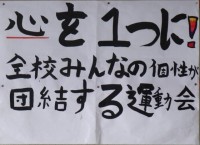 心を1つに!
全校みんなの個性が
団結する運動会